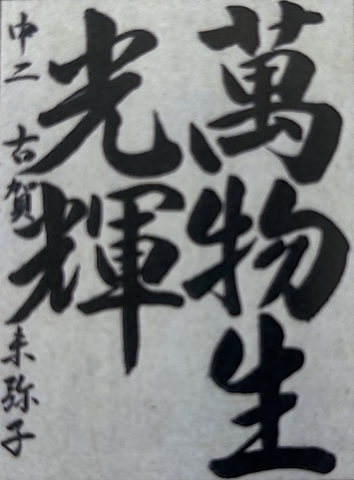 萬物生
光輝
中二 古賀 未弥子